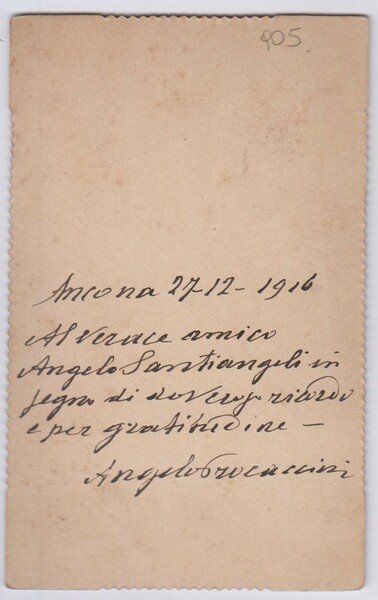 905
Ancona 27-12-1916
Al Verace amico
Angelo Santiangeli in
segno di doveroso ricordo
e per gratitudine —
Angelo Procaccini